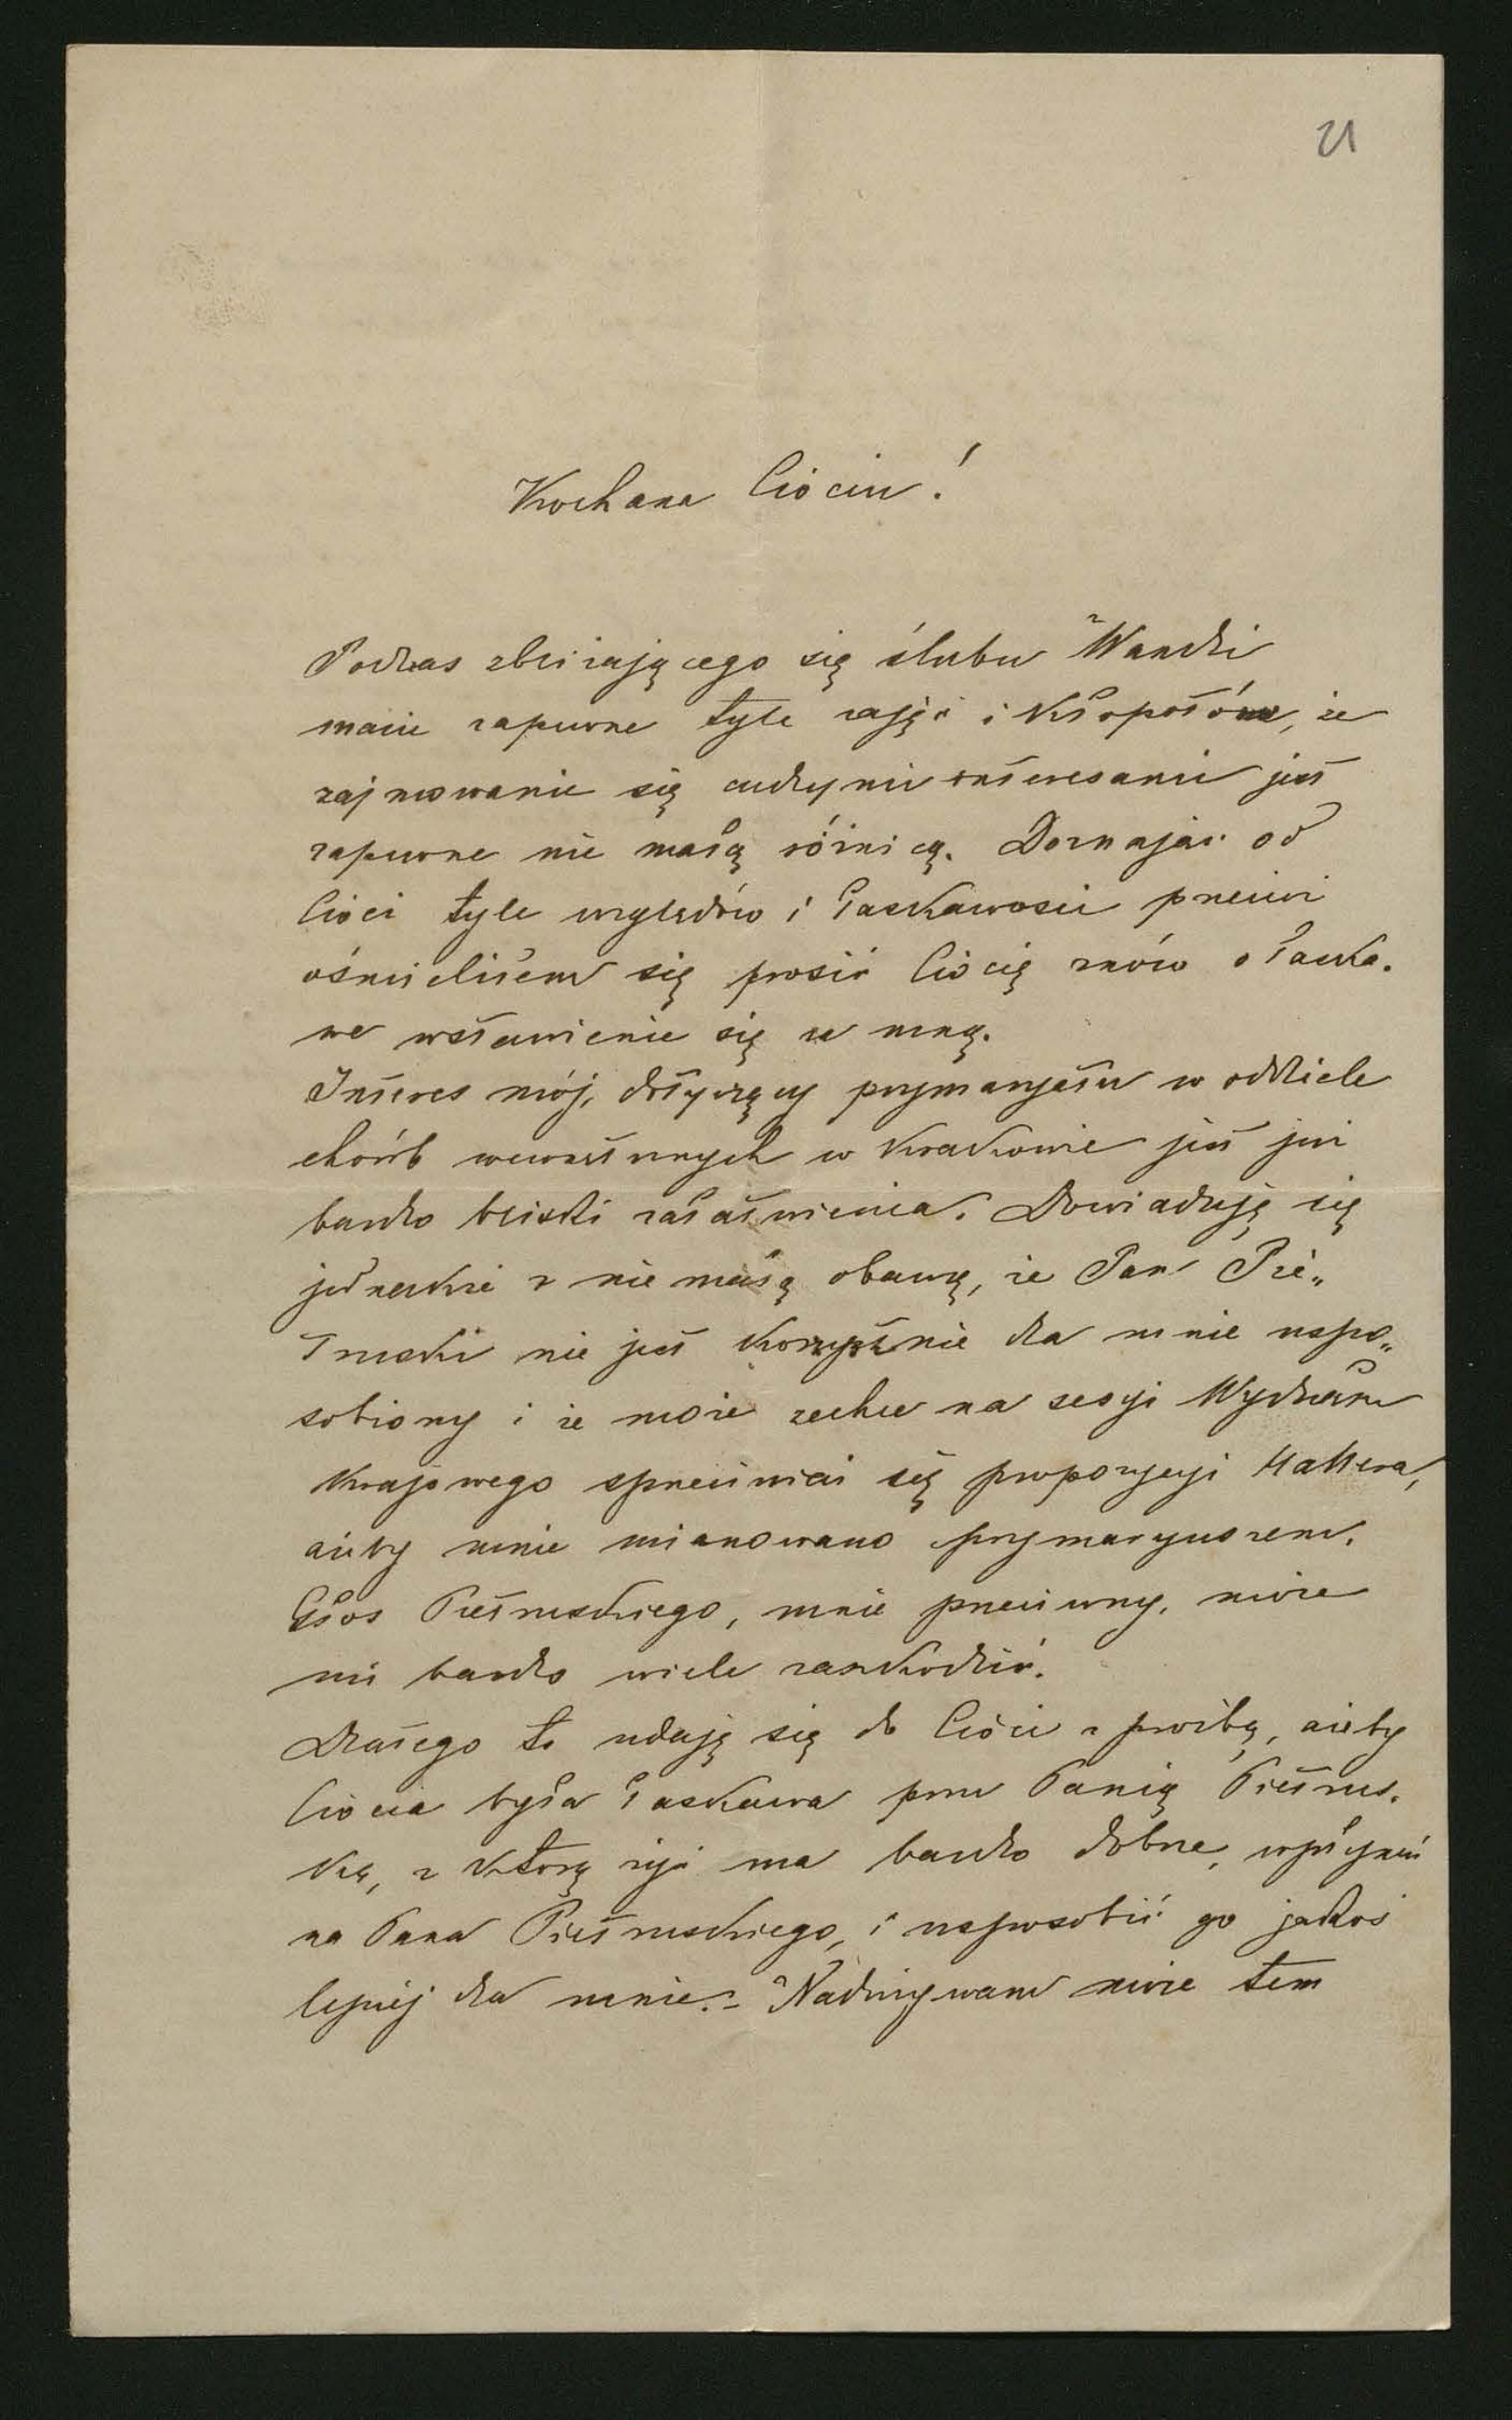 21
Kochana Ciociu!
Podczas zbliżającego się ślubu Wandzi
macie zapewne tyle zajęć i kłopotów, że
zajmowanie się cudzymi interesami jest
zapewne nie małą różnicą. Doznając od
Cioci tyle względów i łaskawości przecież
ośmieliłem się prosić Ciocię znów o łaska-
we wstawienie się za mną.
Interes mój, dotyczący prymaryjatu w oddziele
chorób wewnętrznych w Krakowie jest już
bardzo bliski załatwienia. Dowiaduję się
jednakże z nie małą obawą, że Pan Pie„
truski nie jest korzystnie dla mnie uspo„
sobiony i że może zechce na sesyi Wydziału
krajowego sprzeciwiać się propozycyi Hallera,
ażeby mnie mianowano prymaryuszem.
Głos Pietruskiego, mnie przeciwny, może
mi bardzo wiele zaszkodzić.
Dlatego to udaję się do Cioci z prośbą, ażeby
Ciocia była łaskawa przez Panią Pietrus-
ką, z którą żyje ma bardzo dobrze, wpłynąć
na Pana Pietruskiego, i usposobić go jakoś
lepiej dla mnie. - Nadużywam może tem